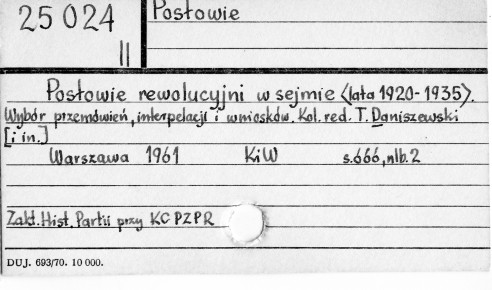 25 024
II
Posłowie
Posłowie rewolucyjni w sejmie <lata 1920-1935>.
Wybór przemówień, interpelacji i wniosków. Kol. red. T. Daniszewski
[i in.]
Warszawa 1961 KiW s. 666, nlb. 2
Zakł. Hist. Partii przy KC PZPR
DUJ. 693/70. 10 000.